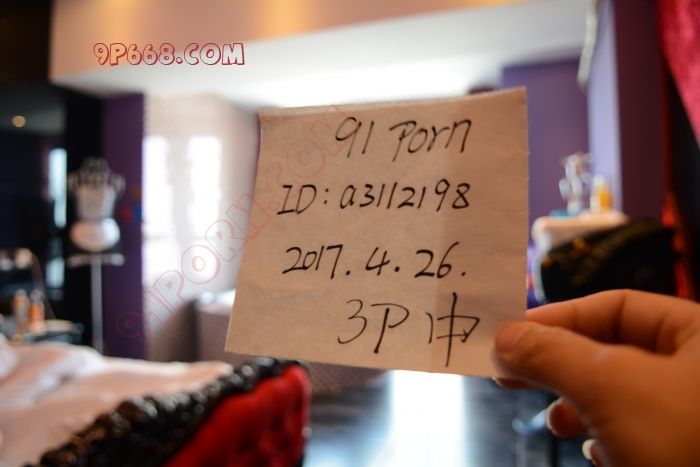 9P668.COM
91 Porn
ID: a3112198
2017.4.26.
3P中
91PORN.COM